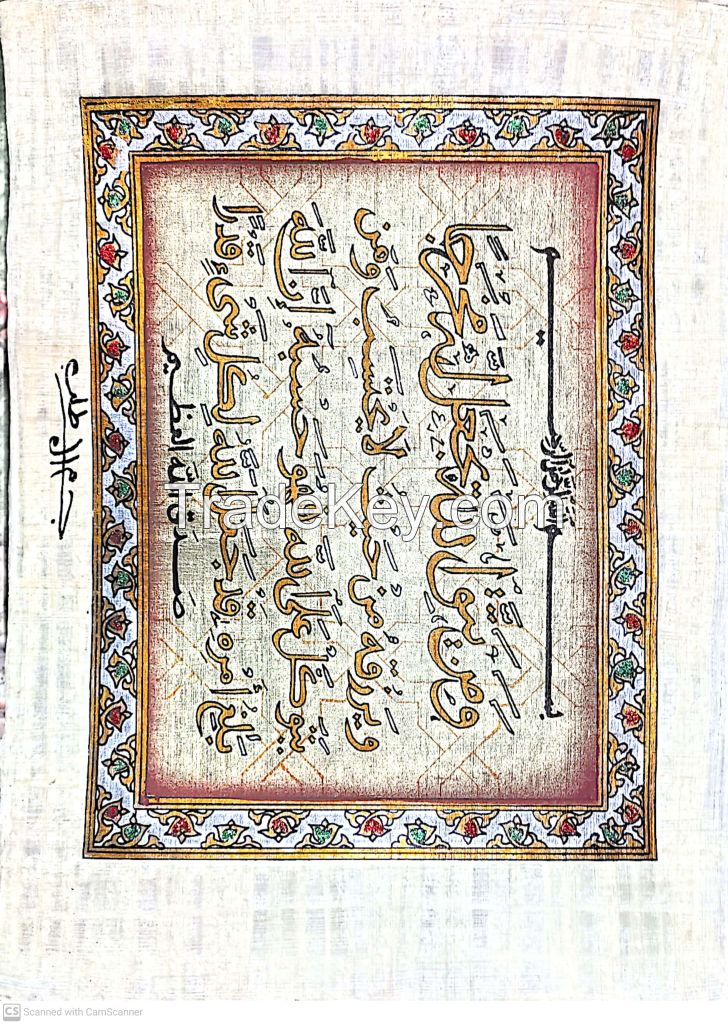 بسم الله الرحمن الرحيم
وَمَن يَتَّقِ اللَّهَ يَجْعَل لَّهُ مَخْرَجًا
وَيَرْزُقْهُ مِنْ حَيْثُ لَا يَحْتَسِبُ وَمَن
يَتَوَكَّلْ عَلَى اللَّهِ فَهُوَ حَسْبُهُ إِنَّ اللَّهَ
بَالِغُ أَمْرِهِ قَدْ جَعَلَ اللَّهُ لِكُلِّ شَيْءٍ قَدْرًا
صدق الله العظيم
TradeKey.com
CS Scanned with CamScanner